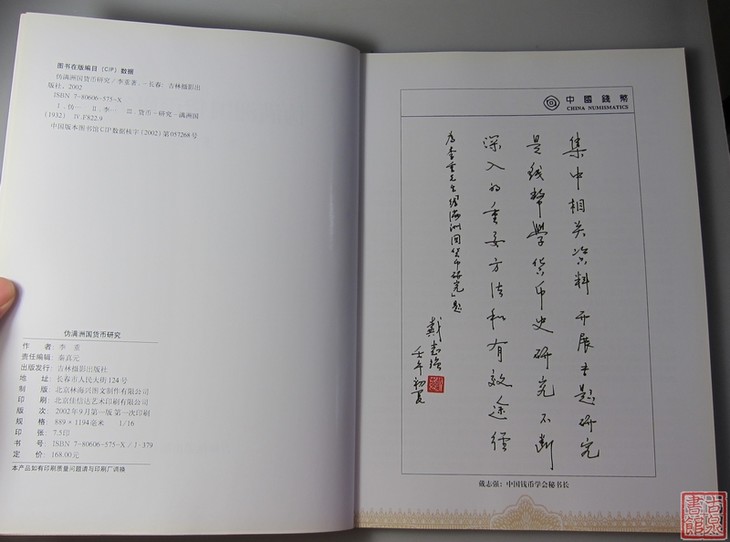 图书在版编目(CIP)数据
伪满洲国货币研究/李重著.—长春:吉林摄影出
版社,2002
ISBN 7-80606-575-X
Ⅰ.伪… Ⅱ.李… Ⅲ.货币-研究-满洲国
(1932) Ⅳ.F822.9
中国版本图书馆CIP数据核字(2002)第057268号
伪满洲国货币研究
作 者: 李 重
责任编辑: 秦真元
出版发行: 吉林摄影出版社
地 址: 长春市人民大街124号
制 版: 北京林海兴图文制作有限公司
印 刷: 北京佳信达艺术印刷有限公司
版 次: 2002年9月第一版 第一次印刷
规 格: 889×1194毫米 1/16
印 张: 7.5印
书 号: ISBN 7-80606-575-X/J·379
定 价: 168.00元
本产品如有印刷质量问题请与印刷厂调换
中國錢幣
CHINA NUMISMATICS
集中相关资料开展专题研究
是钱币学货币史研究不断
深入的重要方法和有效途径
为李重先生《伪满洲国货币研究》题
戴志强
壬午初夏
戴志强:中国钱币学会秘书长
古泉書館